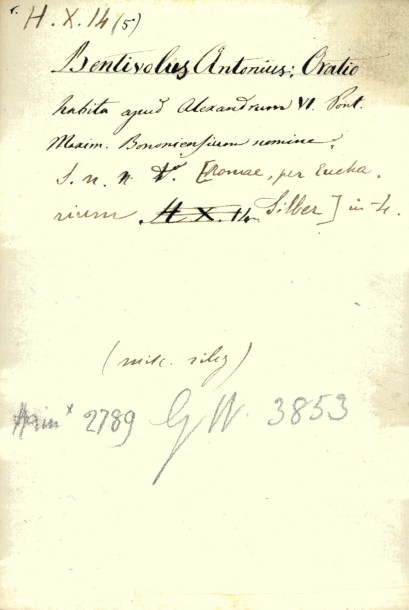 H. X. 14 (5)
Bentivolus Antonius: Oratio
habita apud Alexandrum VI. Pont.
Maxim. Bononiensium nomine.
S. n. n. [Romae, per Eucha-
rium H X. 14 Silber] in-4.
(misc. rileg)
Hain x 2789 GW. 3853